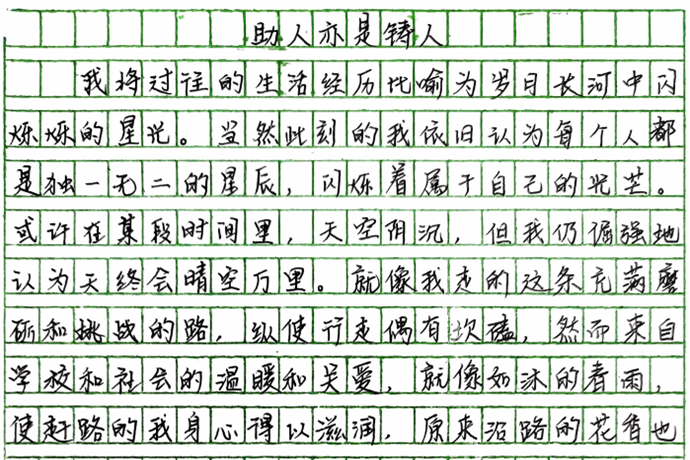 助人亦是铸人
我将过往的生活经历比喻为岁月长河中闪
烁烁的星光。当然此刻的我依旧认为每个人都
是独一无二的星辰，闪烁着属于自己的光芒。
或许在某段时间里，天空阴沉，但我仍倔强地
认为天终会晴空万里。就像我走的这条充满磨
砺和挑战的路，纵使行走偶有坎磕，然而来自
学校和社会的温暖和关爱，就像如沐的春雨，
使赶路的我身心得以滋润，原来沿路的花香也